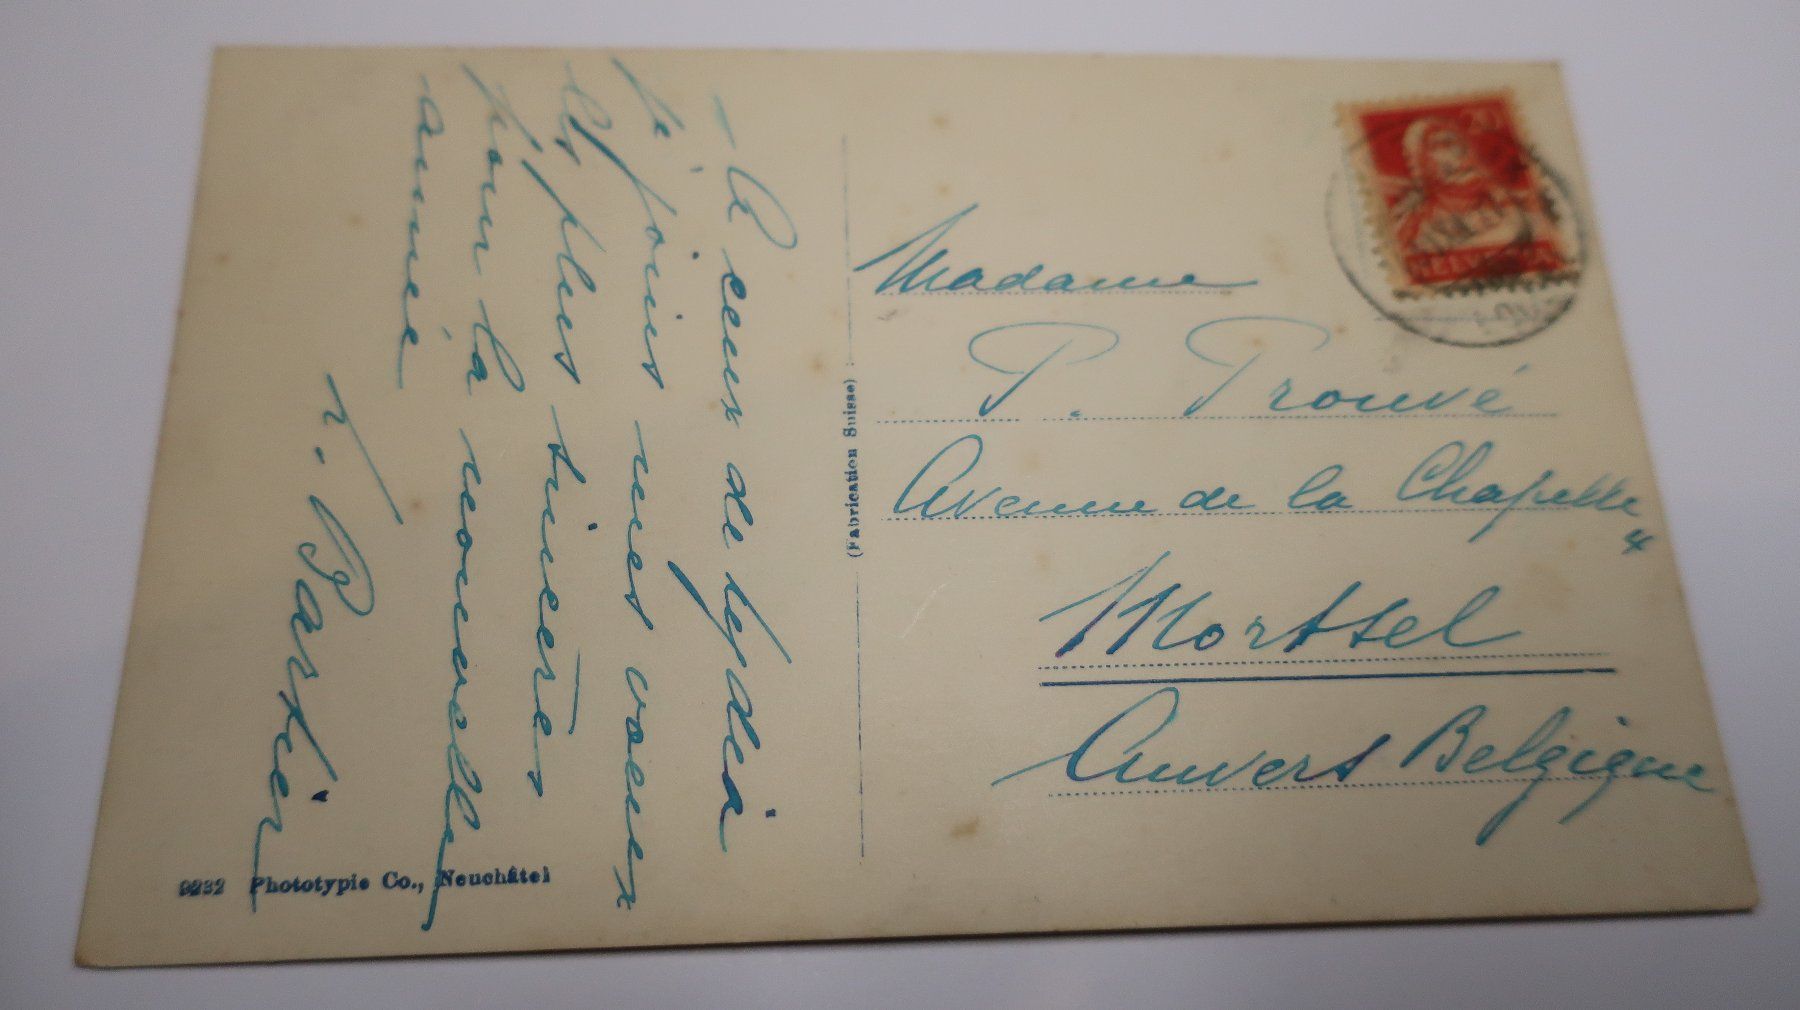 A ceux de Lydia
je joins mes voeux
les plus sincères
pour la nouvelle
année
Bastier
9232 Phototypie Co., Neuchâtel
(Fabrication Suisse)
20
HELVETIA
Madame
P. Trouvé
Avenue de la Chapelle 4
Mortsel
Anvers Belgique